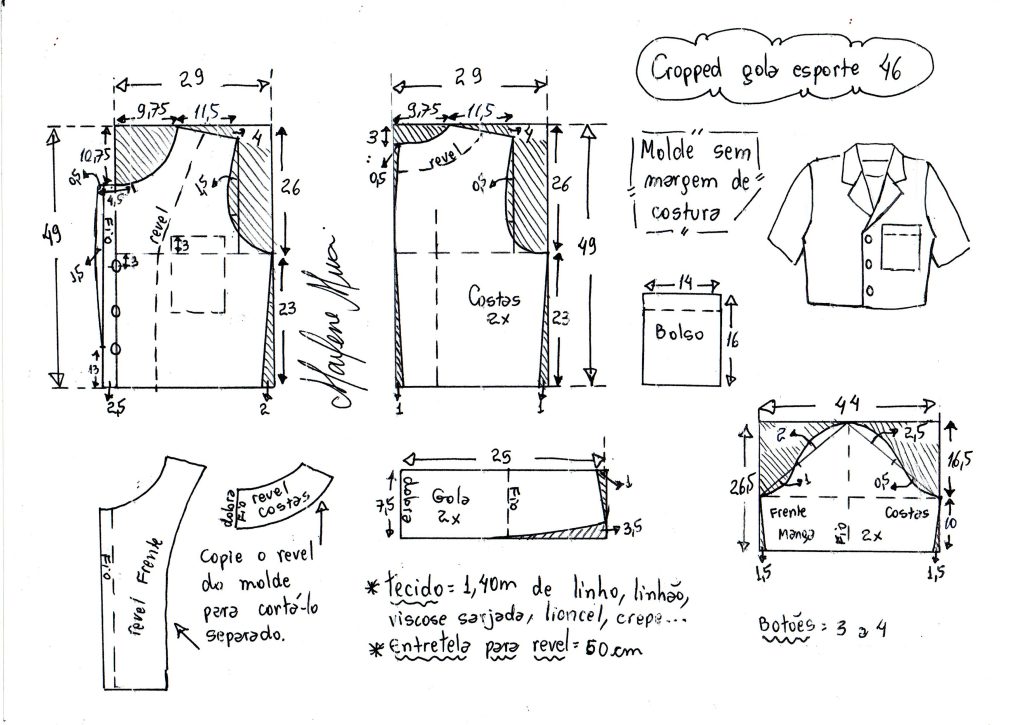 Cropped gola esporte 46
Molde sem
margem de
costura
29
9,75
11,5
4
10,75
0,5
4,5
1,5
26
49
Fio
revel
3
3
1,5
23
13
2,5
2
Marlene Mukai
29
9,75
11,5
3
4
0,5
revel
0,5
26
49
Costas
2x
23
1
1
14
Bolso
16
44
2
2,5
16,5
26,5
1
0,5
Frente
Costas
10
Manga
Fio
2x
1,5
1,5
25
7,5
dobra
Gola
2x
Fio
1
3,5
Fio
revel Frente
dobra
Fio
revel
costas
Copie o revel
do molde
para cortá-lo
separado.
* Tecido = 1,40m de linho, linhão,
viscose sarjada, lioncel, crepe...
* Entretela para revel = 50cm
Botões = 3 a 4